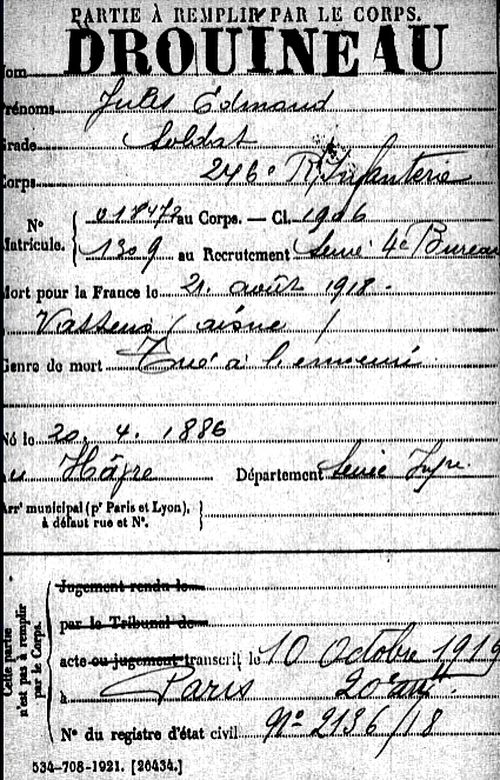 PARTIE À REMPLIR PAR LE CORPS.
DROUINEAU
Nom
Prénoms Jules Edmond
Grade Soldat
Corps 246e R. Infanterie
N° 018472 au Corps. — Cl. 1906
Matricule. 1309 au Recrutement Seine 4e Bureau
Mort pour la France le 21 août 1918
Vassens (aisne)
Genre de mort Tué à l'ennemi
Né le 20. 4. 1886
au Hâvre Département Seine Infre.
Arrt municipal (pr Paris et Lyon),
à défaut rue et N°.
Cette partie
n'est pas à remplir
par le Corps.
Jugement rendu le
par le Tribunal de
acte ou jugement transcrit le 10 Octobre 1919
à Paris 20e arrt.
N° du registre d'état civil N° 2136/18
534-708-1921. [26434.]